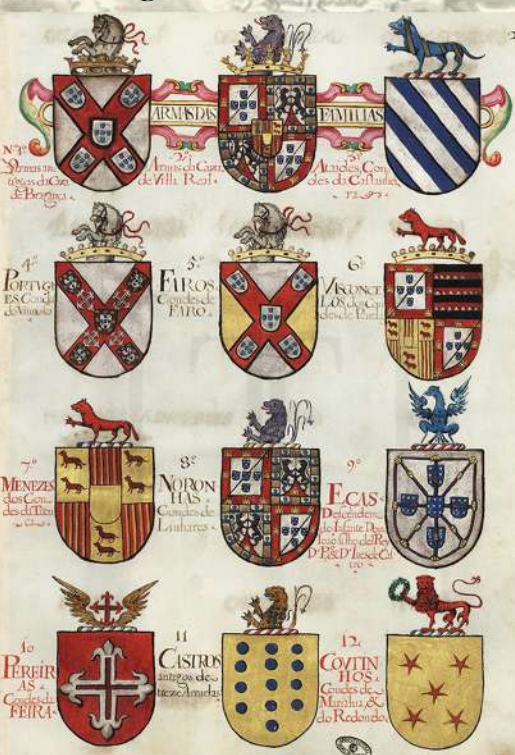 ARMAS DAS FAMILIAS
N.1º
Armas an
tigas da Caza
de Bragança
2º
Armas da Caza
de Villa Real
3º
Ataides, Con
des da Castanhra
4º
PORTUG
ES, Condes
do Vimiozo
5º
FAROS
Condes de
FARO
6º
VASCONCE
LOS dos Con
des de Penela
7º
MENEZES
dos Con
des da
8º
NORON
HAS
Condes de
Linhares
9º
EÇAS
Descendem
do Infante Dom
João filho del Rey
D. Pº, e Dª Ines de Cas
tro
10
PEREIR
AS
Condes da
FEIRA
11
CASTROS
antigos de
treze Arruelas
12
COVTIN
HOS
Condes de
Marialva &
do Redondo